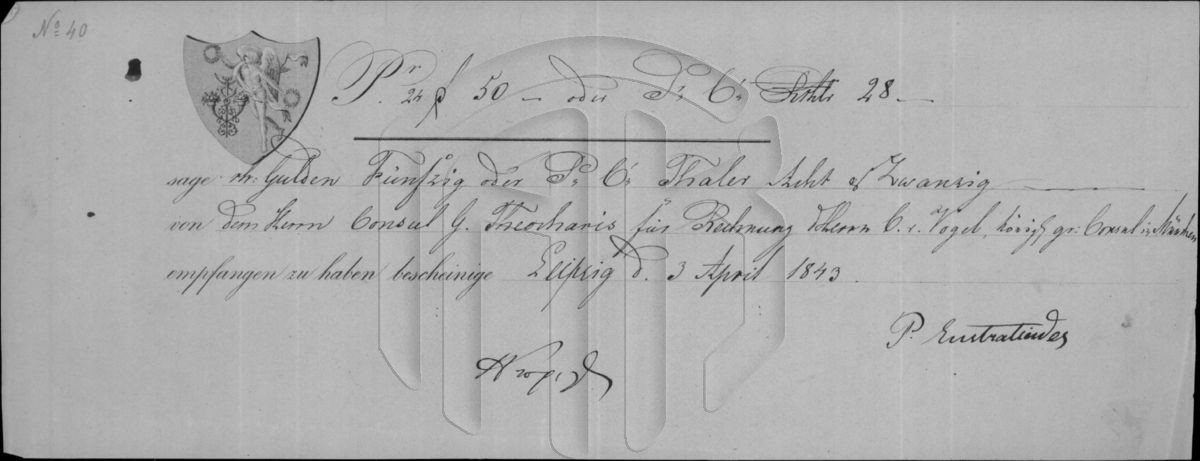 No 40
Pr. 24 f 50 — oder Pr. Ct. Rthlr 28 —
sage: rh: Gulden Fünfzig oder Pr. Ct. Thaler Acht & Zwanzig
von dem Herrn Consul G. Theocharis für Rechnung d Herrn C. v. Vogel, königl gr: Consul in München
empfangen zu haben bescheinige Leipzig d. 3 April 1843.
P.